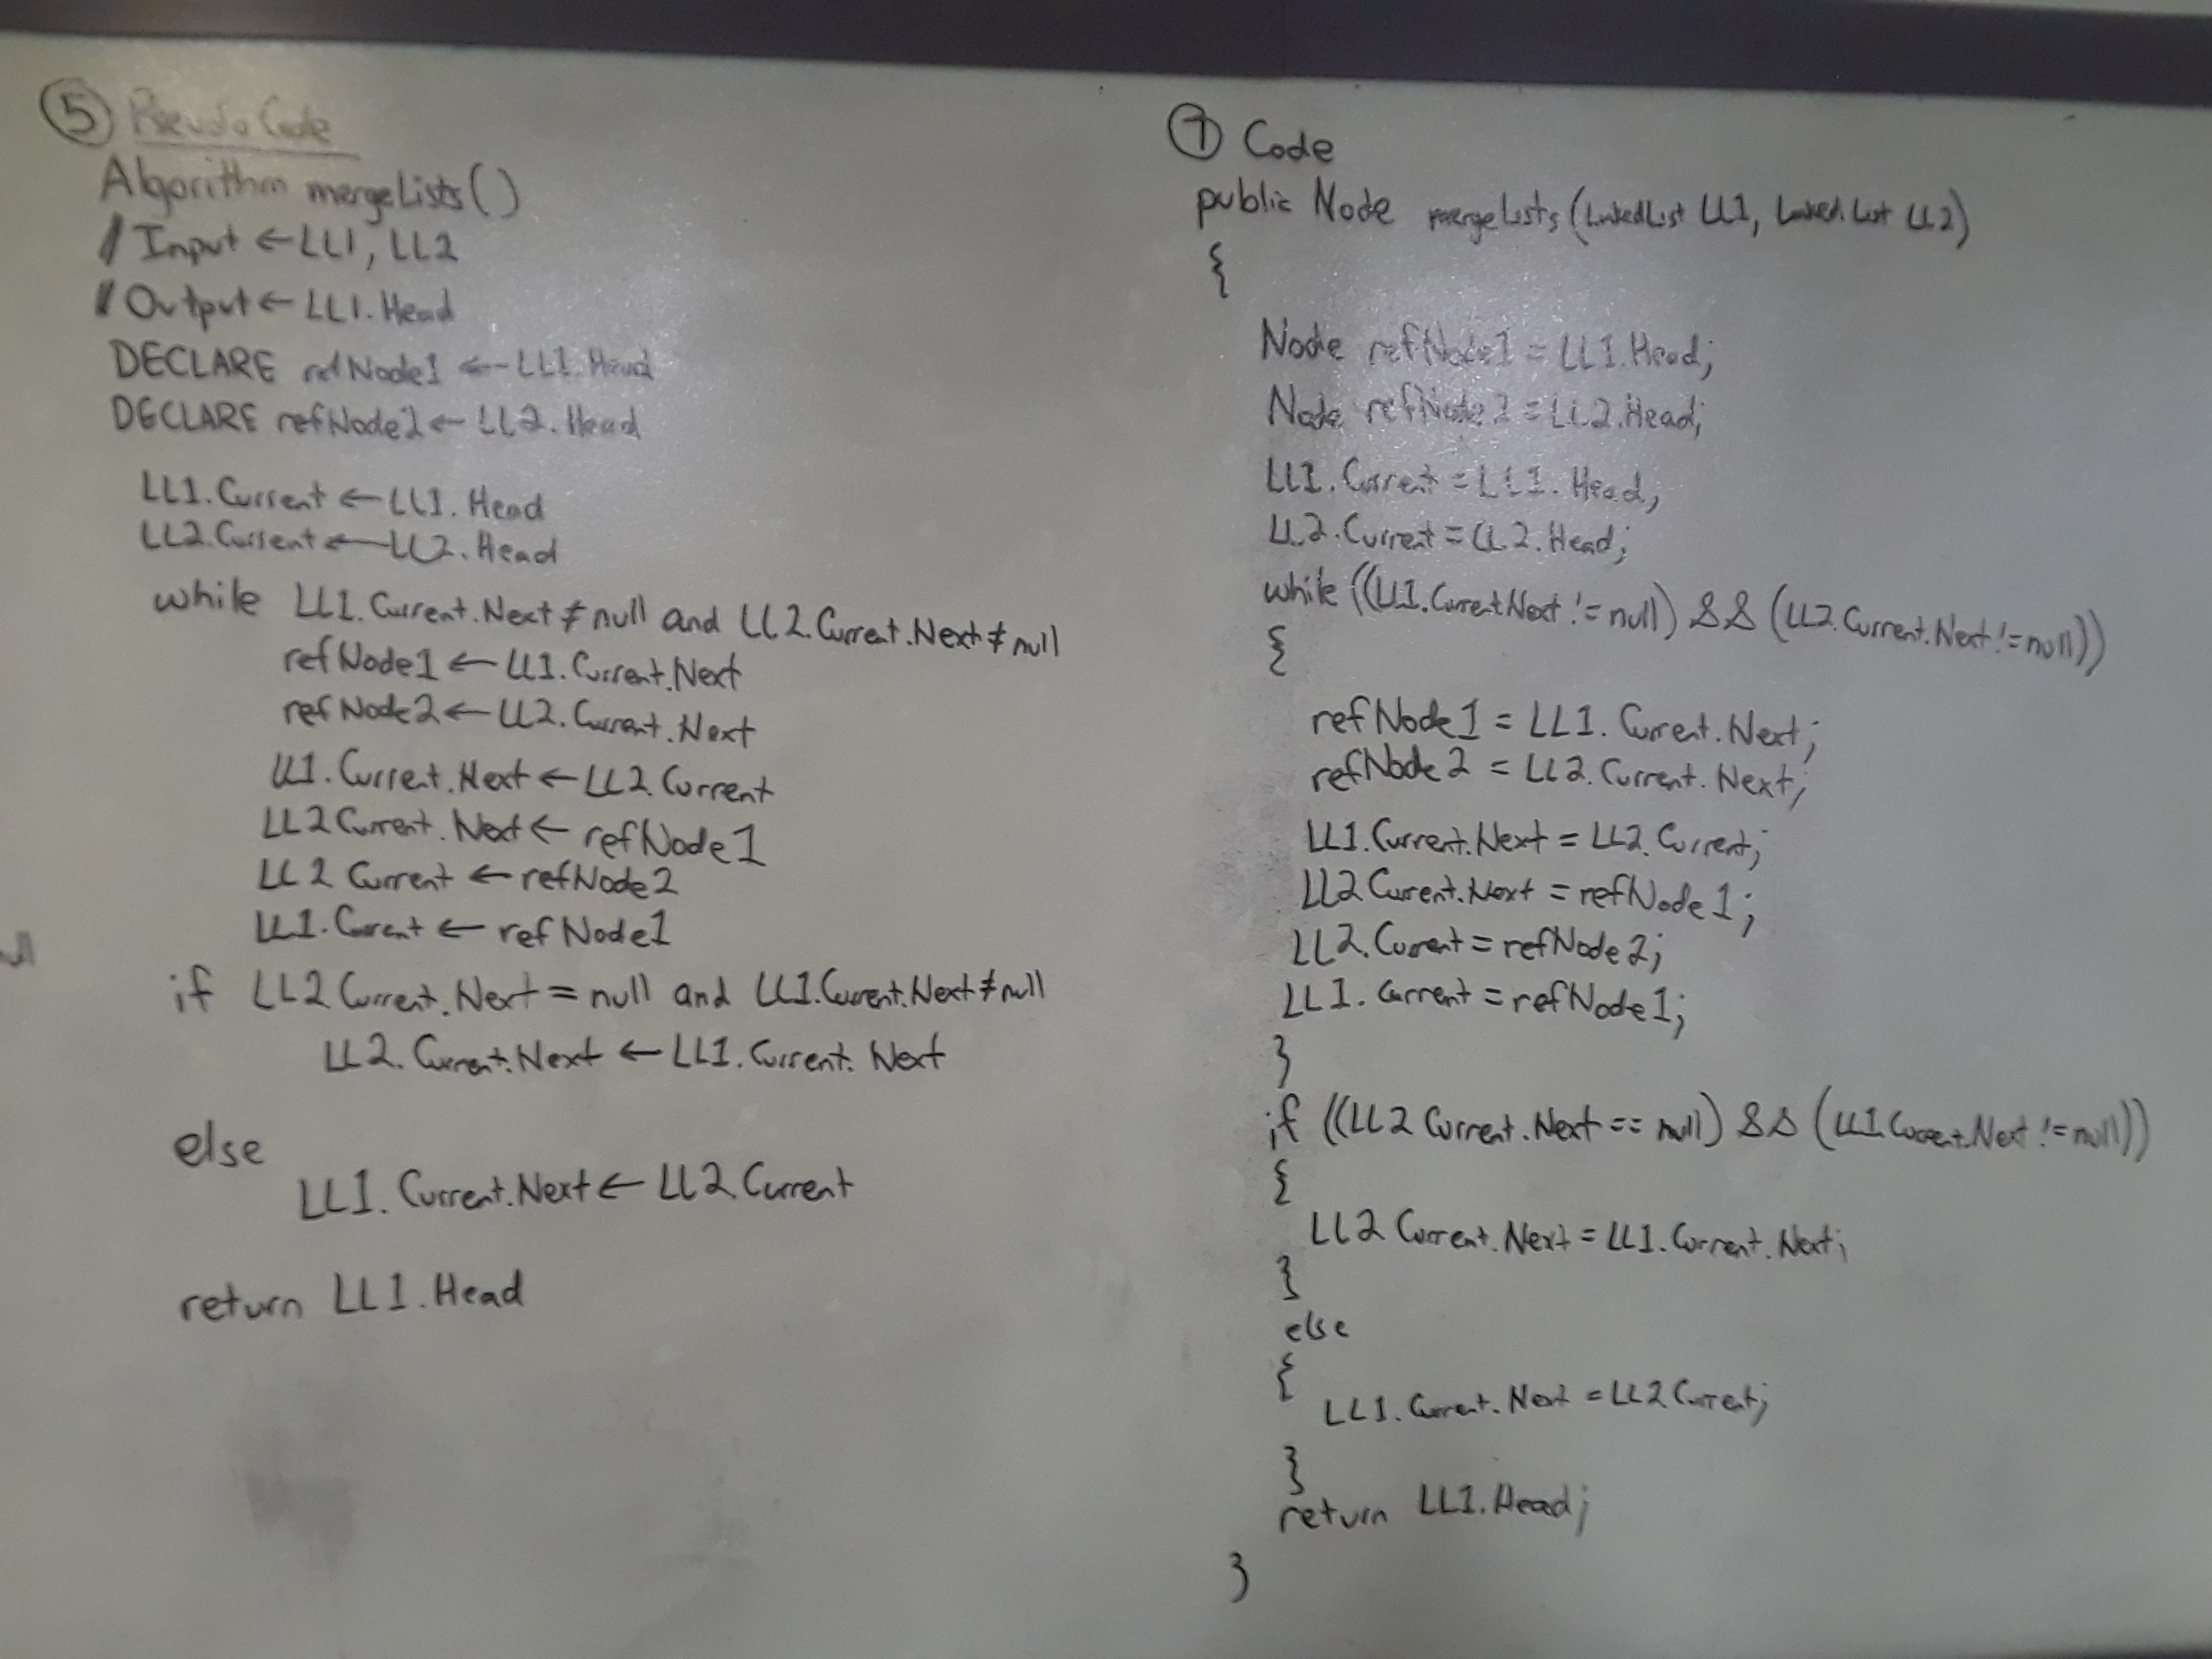 ⑤ Pseudo Code
Algorithm mergeLists()
// Input ← LL1, LL2
// Output ← LL1.Head
DECLARE refNode1 ← LL1.Head
DECLARE refNode2 ← LL2.Head
LL1.Current ← LL1.Head
LL2.Current ← LL2.Head
while LL1.Current.Next ≠ null and LL2.Current.Next ≠ null
refNode1 ← LL1.Current.Next
refNode2 ← LL2.Current.Next
LL1.Current.Next ← LL2.Current
LL2 Current.Next ← refNode1
LL2 Current ← refNode2
LL1.Current ← refNode1
if LL2 Current.Next = null and LL1.Current.Next ≠ null
LL2.Current.Next ← LL1.Current.Next
else
LL1.Current.Next ← LL2.Current
return LL1.Head
ull
⑦ Code
public Node mergeLists(LinkedList LL1, LinkedList LL2)
{
Node refNode1 = LL1.Head;
Node refNode2 = LL2.Head;
LL1.Current = LL1.Head;
LL2.Current = LL2.Head;
while ((LL1.Current.Next != null) && (LL2.Current.Next != null))
{
refNode1 = LL1.Current.Next;
refNode2 = LL2.Current.Next;
LL1.Current.Next = LL2.Current;
LL2 Current.Next = refNode1;
LL2.Current = refNode2;
LL1.Current = refNode1;
}
if ((LL2 Current.Next == null) && (LL1 Current.Next != null))
{
LL2 Current.Next = LL1.Current.Next;
}
else
{
LL1.Current.Next = LL2 Current;
}
return LL1.Head;
}